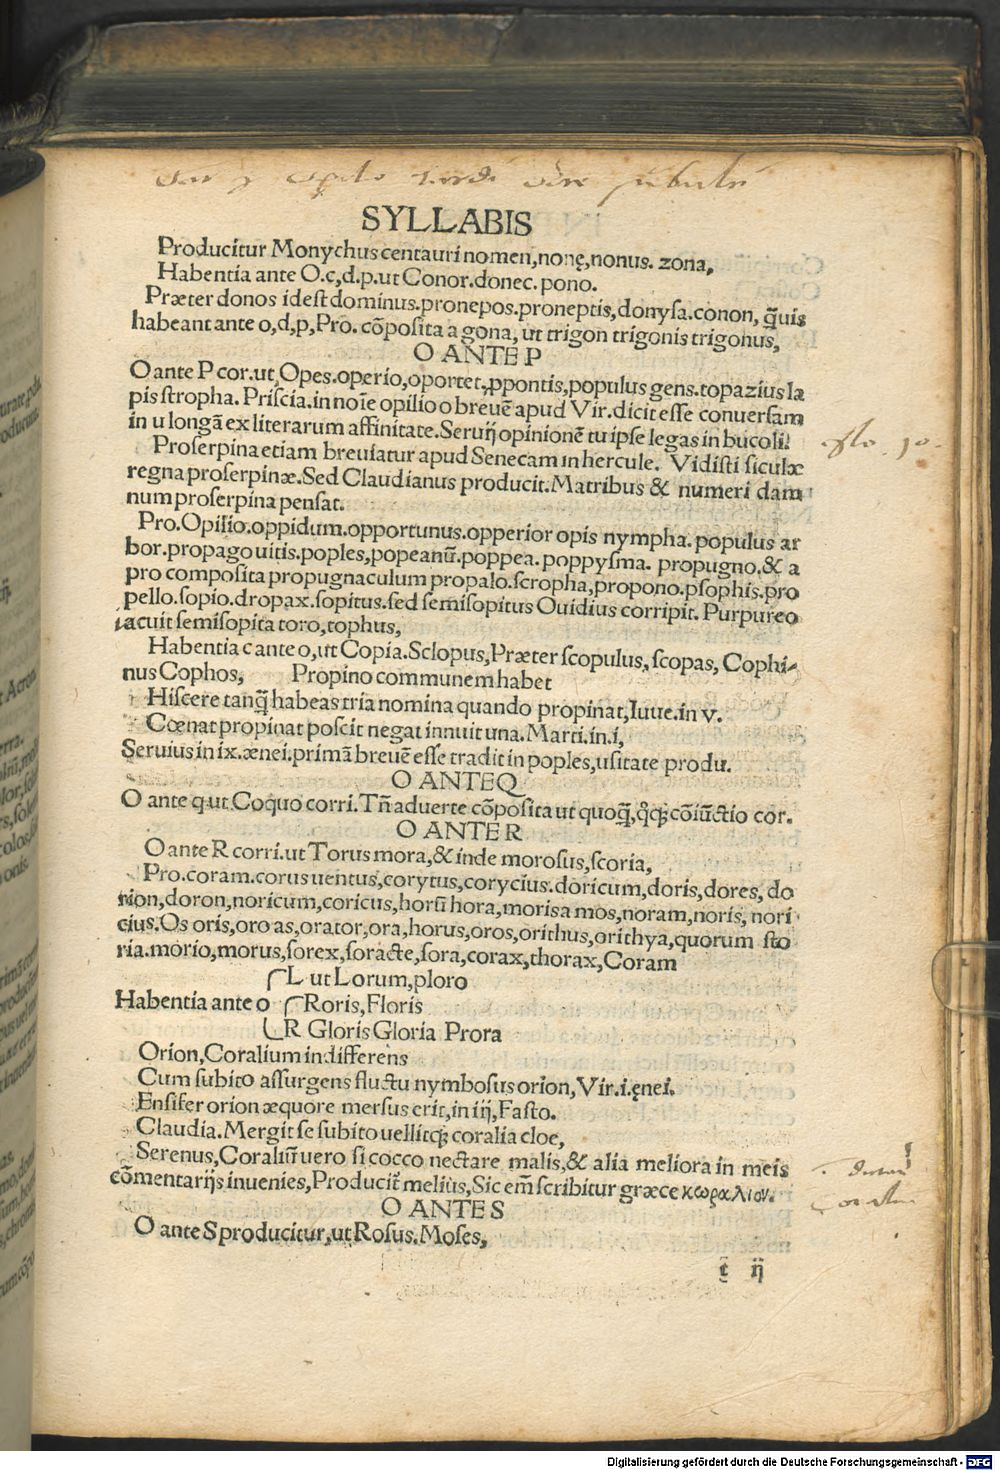 SYLLABIS
Producitur Monychus centauri nomen, nonę, nonus. zona,
Habentia ante O.c,d.p.ut Conor.donec. pono.
Præter donos idest dominus.pronepos.proneptis,donysa.conon, q̃uis
habeant ante o,d,p,Pro. cõposita a gona, ut trigon trigonis trigonus,
O ANTE P
O ante P cor.ut,Opes.operio,oportet,ꝓpontis,populus gens.topazius la
pis stropha. Priscia.in noīe opilio o breuē apud Vir.dicit esse conuersam
in u longã ex literarum affinitate.Seruij opinionē tu ipse legas in bucoli.
Proserpina etiam breuiatur apud Senecam in hercule. Vidisti siculæ
regna proserpinæ.Sed Claudianus producit.Matribus & numeri dam
num proserpina pensat.
Pro.Opilio.oppidum.opportunus.opperior opis nympha. populus ar
bor.propago uitis.poples,popeanū.poppea. poppysma. propugno,& a
pro composita propugnaculum propalo.scropha,propono.psophis.pro
pello.sopio.dropax.sopitus.sed semisopitus Ouidius corripit. Purpureo
iacuit semisopita toro,tophus,
Habentia c ante o,ut Copia.Sclopus,Præter scopulus,scopas, Cophi-
nus Cophos, Propino communem habet
Hiscere tanq̃ habeas tria nomina quando propinat,Iuue.in v.
Cœnat propinat poscit negat innuit una. Marti.in.i,
Seruius in ix.ænei.primã breuē esse tradit in poples,usitate produ.
O ANTE Q
O ante q.ut Coquo corri. Tñ aduerte cõposita ut quoq̃,q̃cꝗ cõiũctio cor.
O ANTE R
O ante R corri.ut Torus mora,& inde morosus,scoria,
Pro.coram.corus uentus,corytus,corycius.doricum,doris,dores, do
rion,doron,noricum,coricus,horū hora,moris a mos,noram,noris, nori
cius.Os oris,oro as,orator,ora,horus,oros,orithus,orithya,quorum sto
ria.morio,morus,sorex,soracte,sora,corax,thorax,Coram
L ut Lorum,ploro
Habentia ante o Roris,Floris
R Gloris Gloria Prora
Orion,Coralium indifferens
Cum subito assurgens fluctu nymbosus orion,Vir.i.ęnei.
Ensifer orion æquore mersus erit,in iij,Fasto.
Claudia.Mergit se subito uellitq̃ coralia cloe,
Serenus,Coraliū uero si cocco nectare malis,& alia meliora in meis
cõmentarijs inuenies,Producit̃ melius,Sic em̄ scribitur græce κωραλιον.
O ANTE S
O ante S producitur,ut Rosus.Moses,
t ij
Digitalisierung gefördert durch die Deutsche Forschungsgemeinschaft - DFG